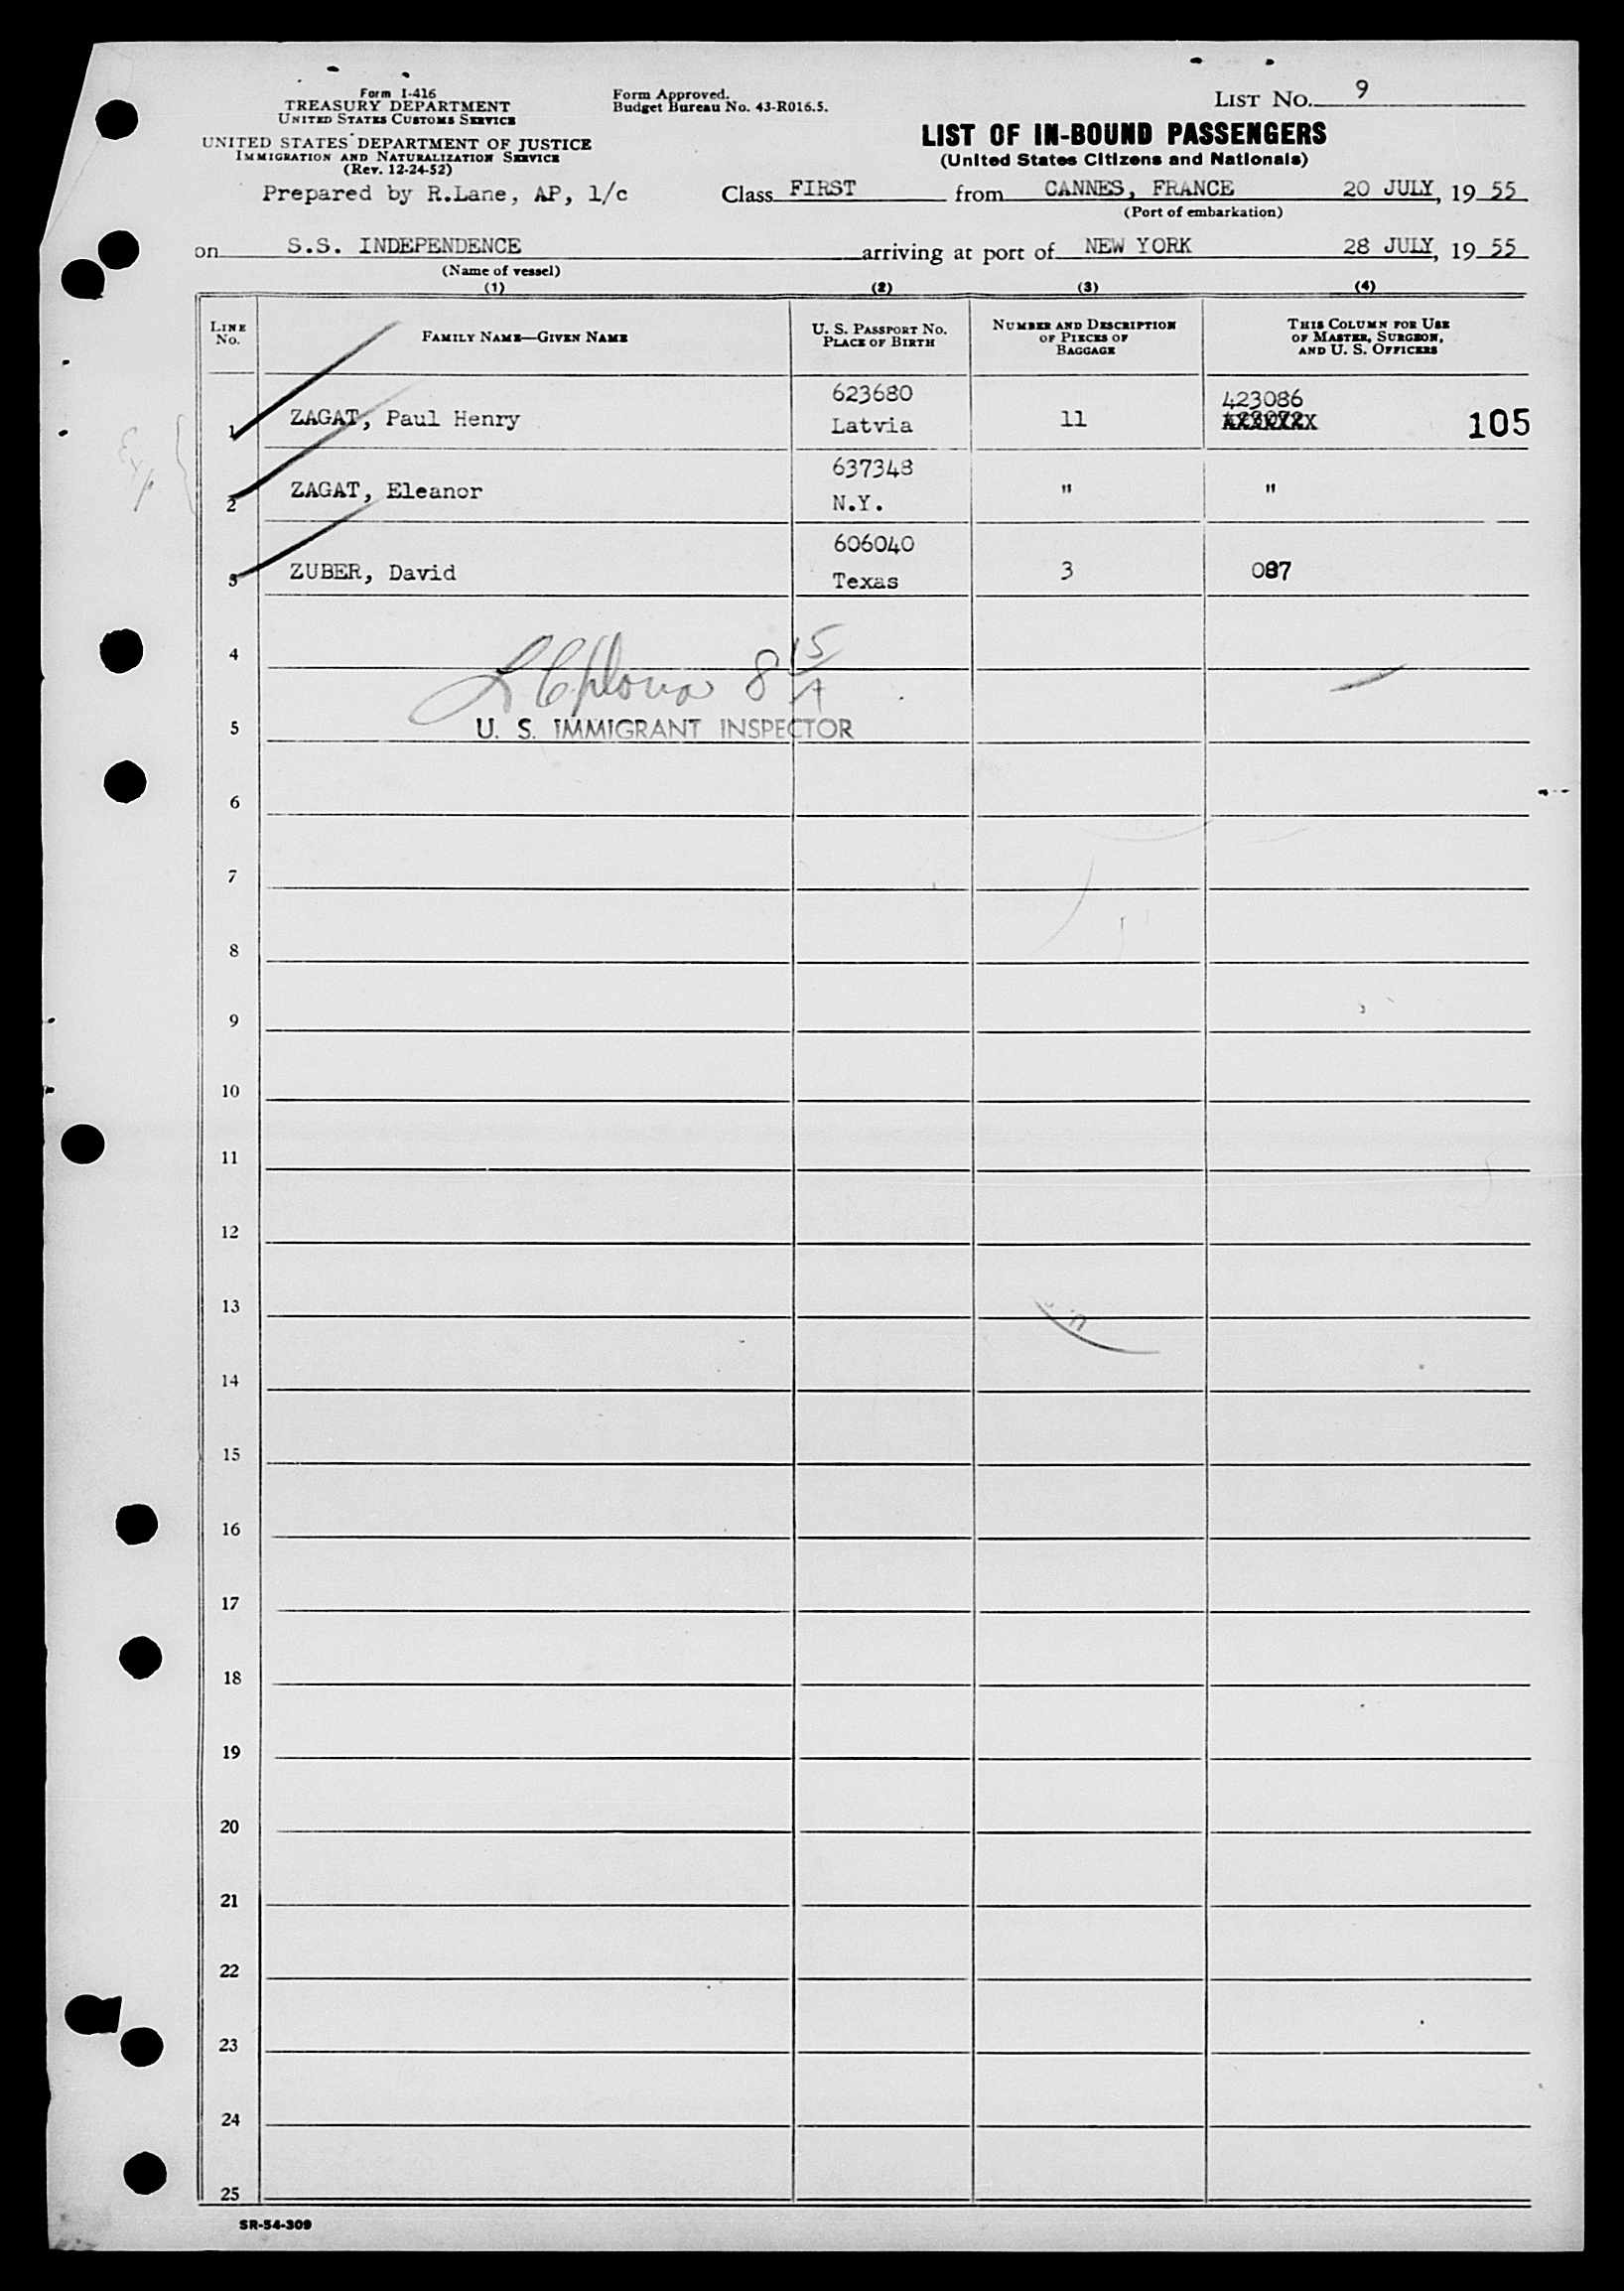 Form I-416
TREASURY DEPARTMENT
UNITED STATES CUSTOMS SERVICE
UNITED STATES DEPARTMENT OF JUSTICE
IMMIGRATION AND NATURALIZATION SERVICE
(Rev. 12-24-52)
Form Approved.
Budget Bureau No. 43-R016.5.
LIST NO. 9
LIST OF IN-BOUND PASSENGERS
(United States Citizens and Nationals)
Prepared by R.Lane, AP, 1/c Class FIRST from CANNES, FRANCE 20 JULY, 19 55
(Port of embarkation)
on S.S. INDEPENDENCE arriving at port of NEW YORK 28 JULY, 19 55
(Name of vessel)
(1) (2) (3) (4)
LINE NO.
FAMILY NAME—GIVEN NAME
U. S. PASSPORT NO.
PLACE OF BIRTH
NUMBER AND DESCRIPTION
OF PIECES OF
BAGGAGE
THIS COLUMN FOR USE
OF MASTER, SURGEON,
AND U. S. OFFICERS
623680 423086
1 ZAGAT, Paul Henry Latvia 11 105
637348
2 ZAGAT, Eleanor N.Y. " "
606040
3 ZUBER, David Texas 3 087
4
8 15/A
U. S. IMMIGRANT INSPECTOR
5
6
7
8
9
10
11
12
13
14
15
16
17
18
19
20
21
22
23
24
25
SR-54-309